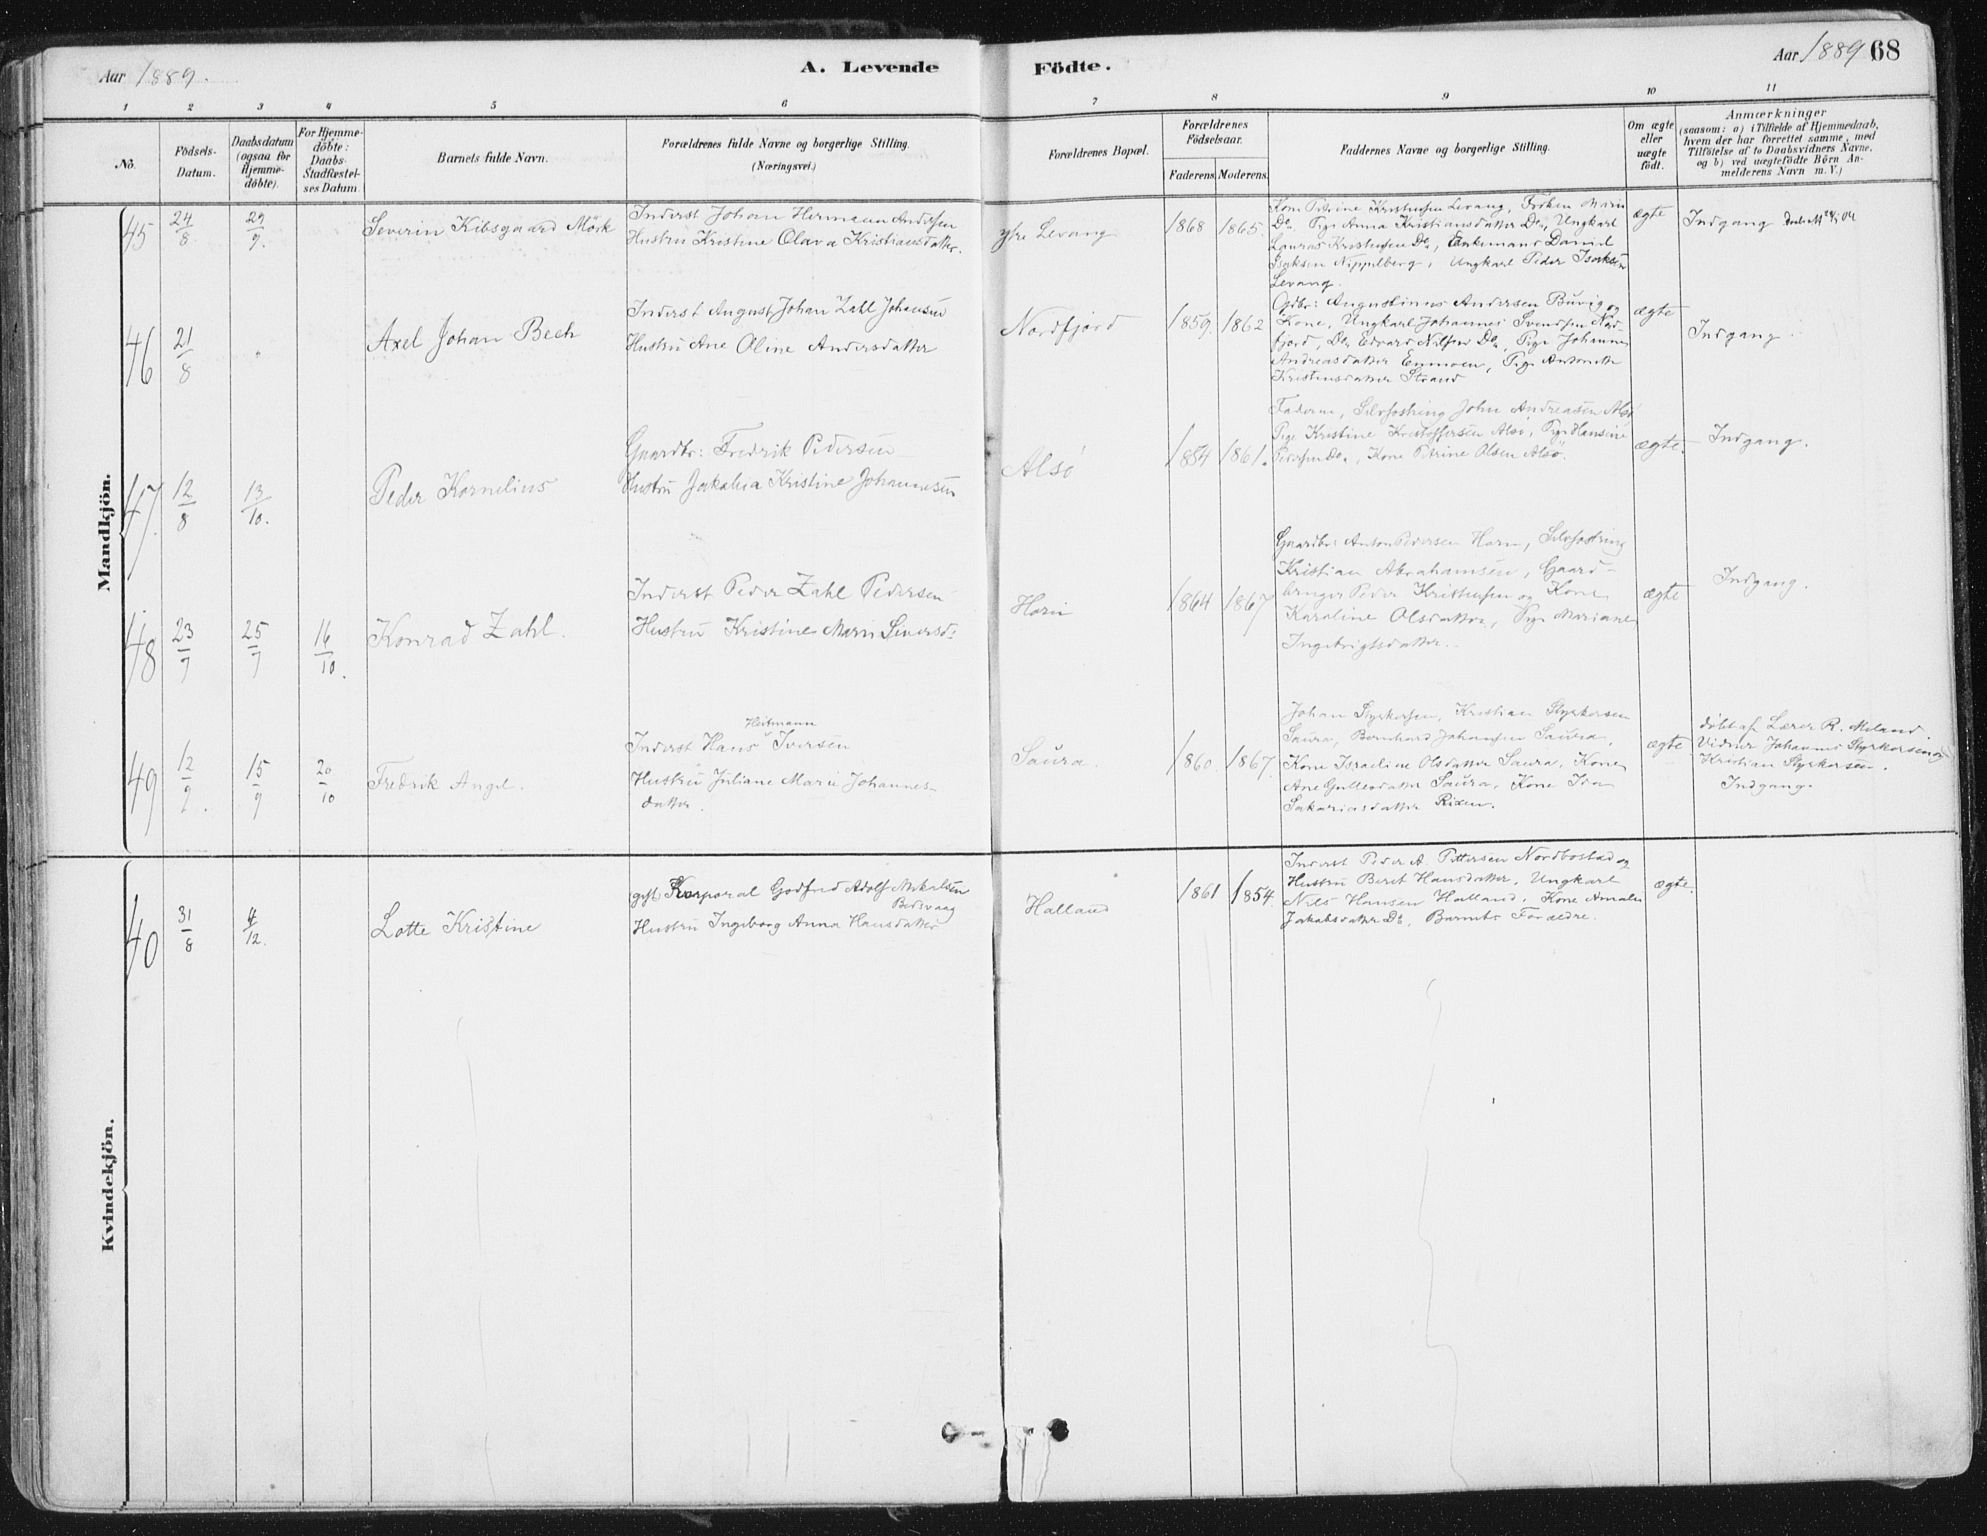 Aar 1889.
A. Levende Födte.
Aar 1889 68
1 2 3 4 5 6 7 8 9 10 11
No.
Födsels-
Datum.
Daabsdatum
(ogsaa for
Hjemme-
döbte).
For Hjemme-
döbte:
Daabs-
Stadfæstel-
ses Datum.
Barnets fulde Navn.
Forældrenes fulde Navne og borgerlige Stilling.
(Næringsvei.)
Forældrenes Bopæl.
Forældrenes
Födselsaar.
Faderens. Moderens.
Faddernes Navne og borgerlige Stilling.
Om ægte
eller
uægte
født.
Anmærkninger
(saasom: a) i Tilfælde af Hjemmedaab,
hvem der har forrettet samme, med
Tilföielse af to Daabsvidners Navne,
og b) ved uægtefödte Börn An-
melderens Navn m. V.)
Mandkjön.
45
24/8
29/9.
Severin Kibsgaard Mörk
Inderst Johan Hermann Andersen
Hustru Kristine Olava Kristiansdatter.
ytre Levang
1868 1865.
Kone Petrine Kristensen Levang, Frøken Marie
Do, Pige Anna Kristiansdatter Do, Ungkarl
Lauras Kristensen Do, Enkemand Daniel
Isaksen Nippelberg, Ungkarl Peder Isaksen
Levang.
ægte
Indgang
46
21/8
"
Axel Johan Bech
Inderst August Johan Zahl Johansen
Hustru Ane Oline Andersdatter
Nordfjord
1859. 1862
Gdbr: Augustinus Andersen Buvig og
Kone, Ungkarl Johannes Svendsen Nord-
fjord, Do Edvard Nilsen Do, Pige Johanne
Andreasdatter Enmoen, Pige Antonette
Kristensdatter Strand
ægte
Indgang
47.
12/8
13/10.
Peder Kornelius
Gaardbr: Fredrik Pedersen
Hustru Jakobea Kristine Johannesen
Alsö
1854 1861.
Faderen, Selvfostring John Andreasen Alsö
Pige Kristine Kristoffersen Alsö, Pige Hansine
Pedersen Do, Kone Petrine Olsen Alsö.
ægte.
Indgang.
48
23/7
25/7
16/10.
Konrad Zahl.
Inderst Peder Zahl Pedersen
Hustru Kristine Marie Siversd:
Horn
1864 1867
Gaardbr: Anton Pedersen Horn, Selvfostring
Kristian Abrahamsen, Gaard-
bruger Peder Kristensen og Kone
Karoline Olsdatter, Pige Mariane
Ingebrigtsdatter.
ægte
Indgang.
49
12/9.
15/9
20/10
Fredrik Angel.
Heitmann
Inderst Hans Iversen
Hustru Juliane Marie Johannes-
datter.
Saura.
1860. 1867.
Johan Styrkersen, Kristian Styrkersen
Saura, Bernhard Johansen Saura,
Kone Israeline Olsdatter Saura, Kone
Ane Gullesdatter Saura, Kone Ida
Sakariasdatter Risen.
ægte
döbt af Lærer R. Meland.
Vidner Johannes Styrkersen og
Kristian Styrkersen.
Indgang.
Kvindekjön.
40
31/8
4/12.
Lotte Kristine
gift Korporal Godfred Adolf Mikalsen
Bedsvaag
Hustru Ingeborg Anna Hansdatter
Halland
1861 1854.
Inderst Peder A. Pettersen Nordbostad og
Hustru Berit Hansdatter, Ungkarl
Nils Hansen Halland, Kone Amalie
Jakobsdatter Do, Barnets Forældre.
ægte.